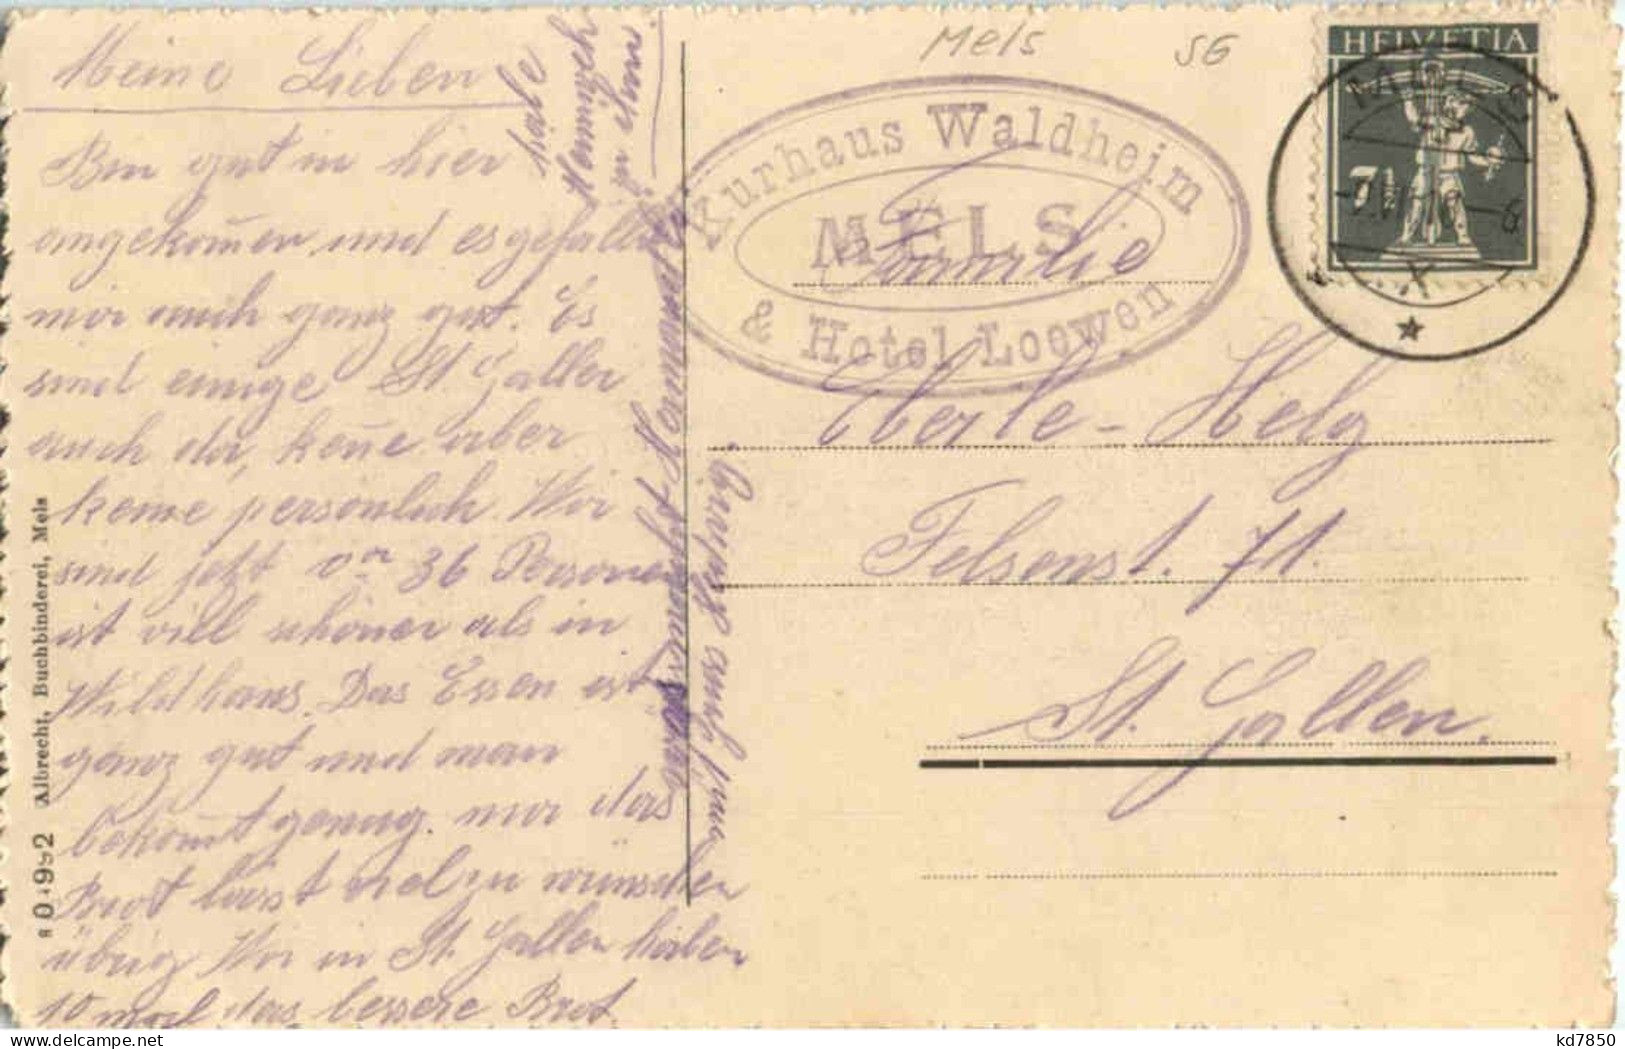 Meine Lieben
Bin gut in hier
angekomen, und es gefällt
mir auch ganz gut. Es
sind einige St. Galler
auch da, kene aber
keine persönlich. Wir
sind jetzt 36 Personen
ist viell schöner als in
Wildhaus. Das Essen ist
ganz gut und man
bekomt genug, nur das
Brot lässt viel zu wünschen
übrig Wir in St. Gallen haben
10 mal das bessere Brot.
Mels
SG
Kurhaus Waldheim
MELS
& Hotel Loewen
HELVETIA
7½
MELS
Familie
Eberle-Helg
Felsenst. 71.
St. Gallen.
80992 Albrecht, Buchbinderei, Mels